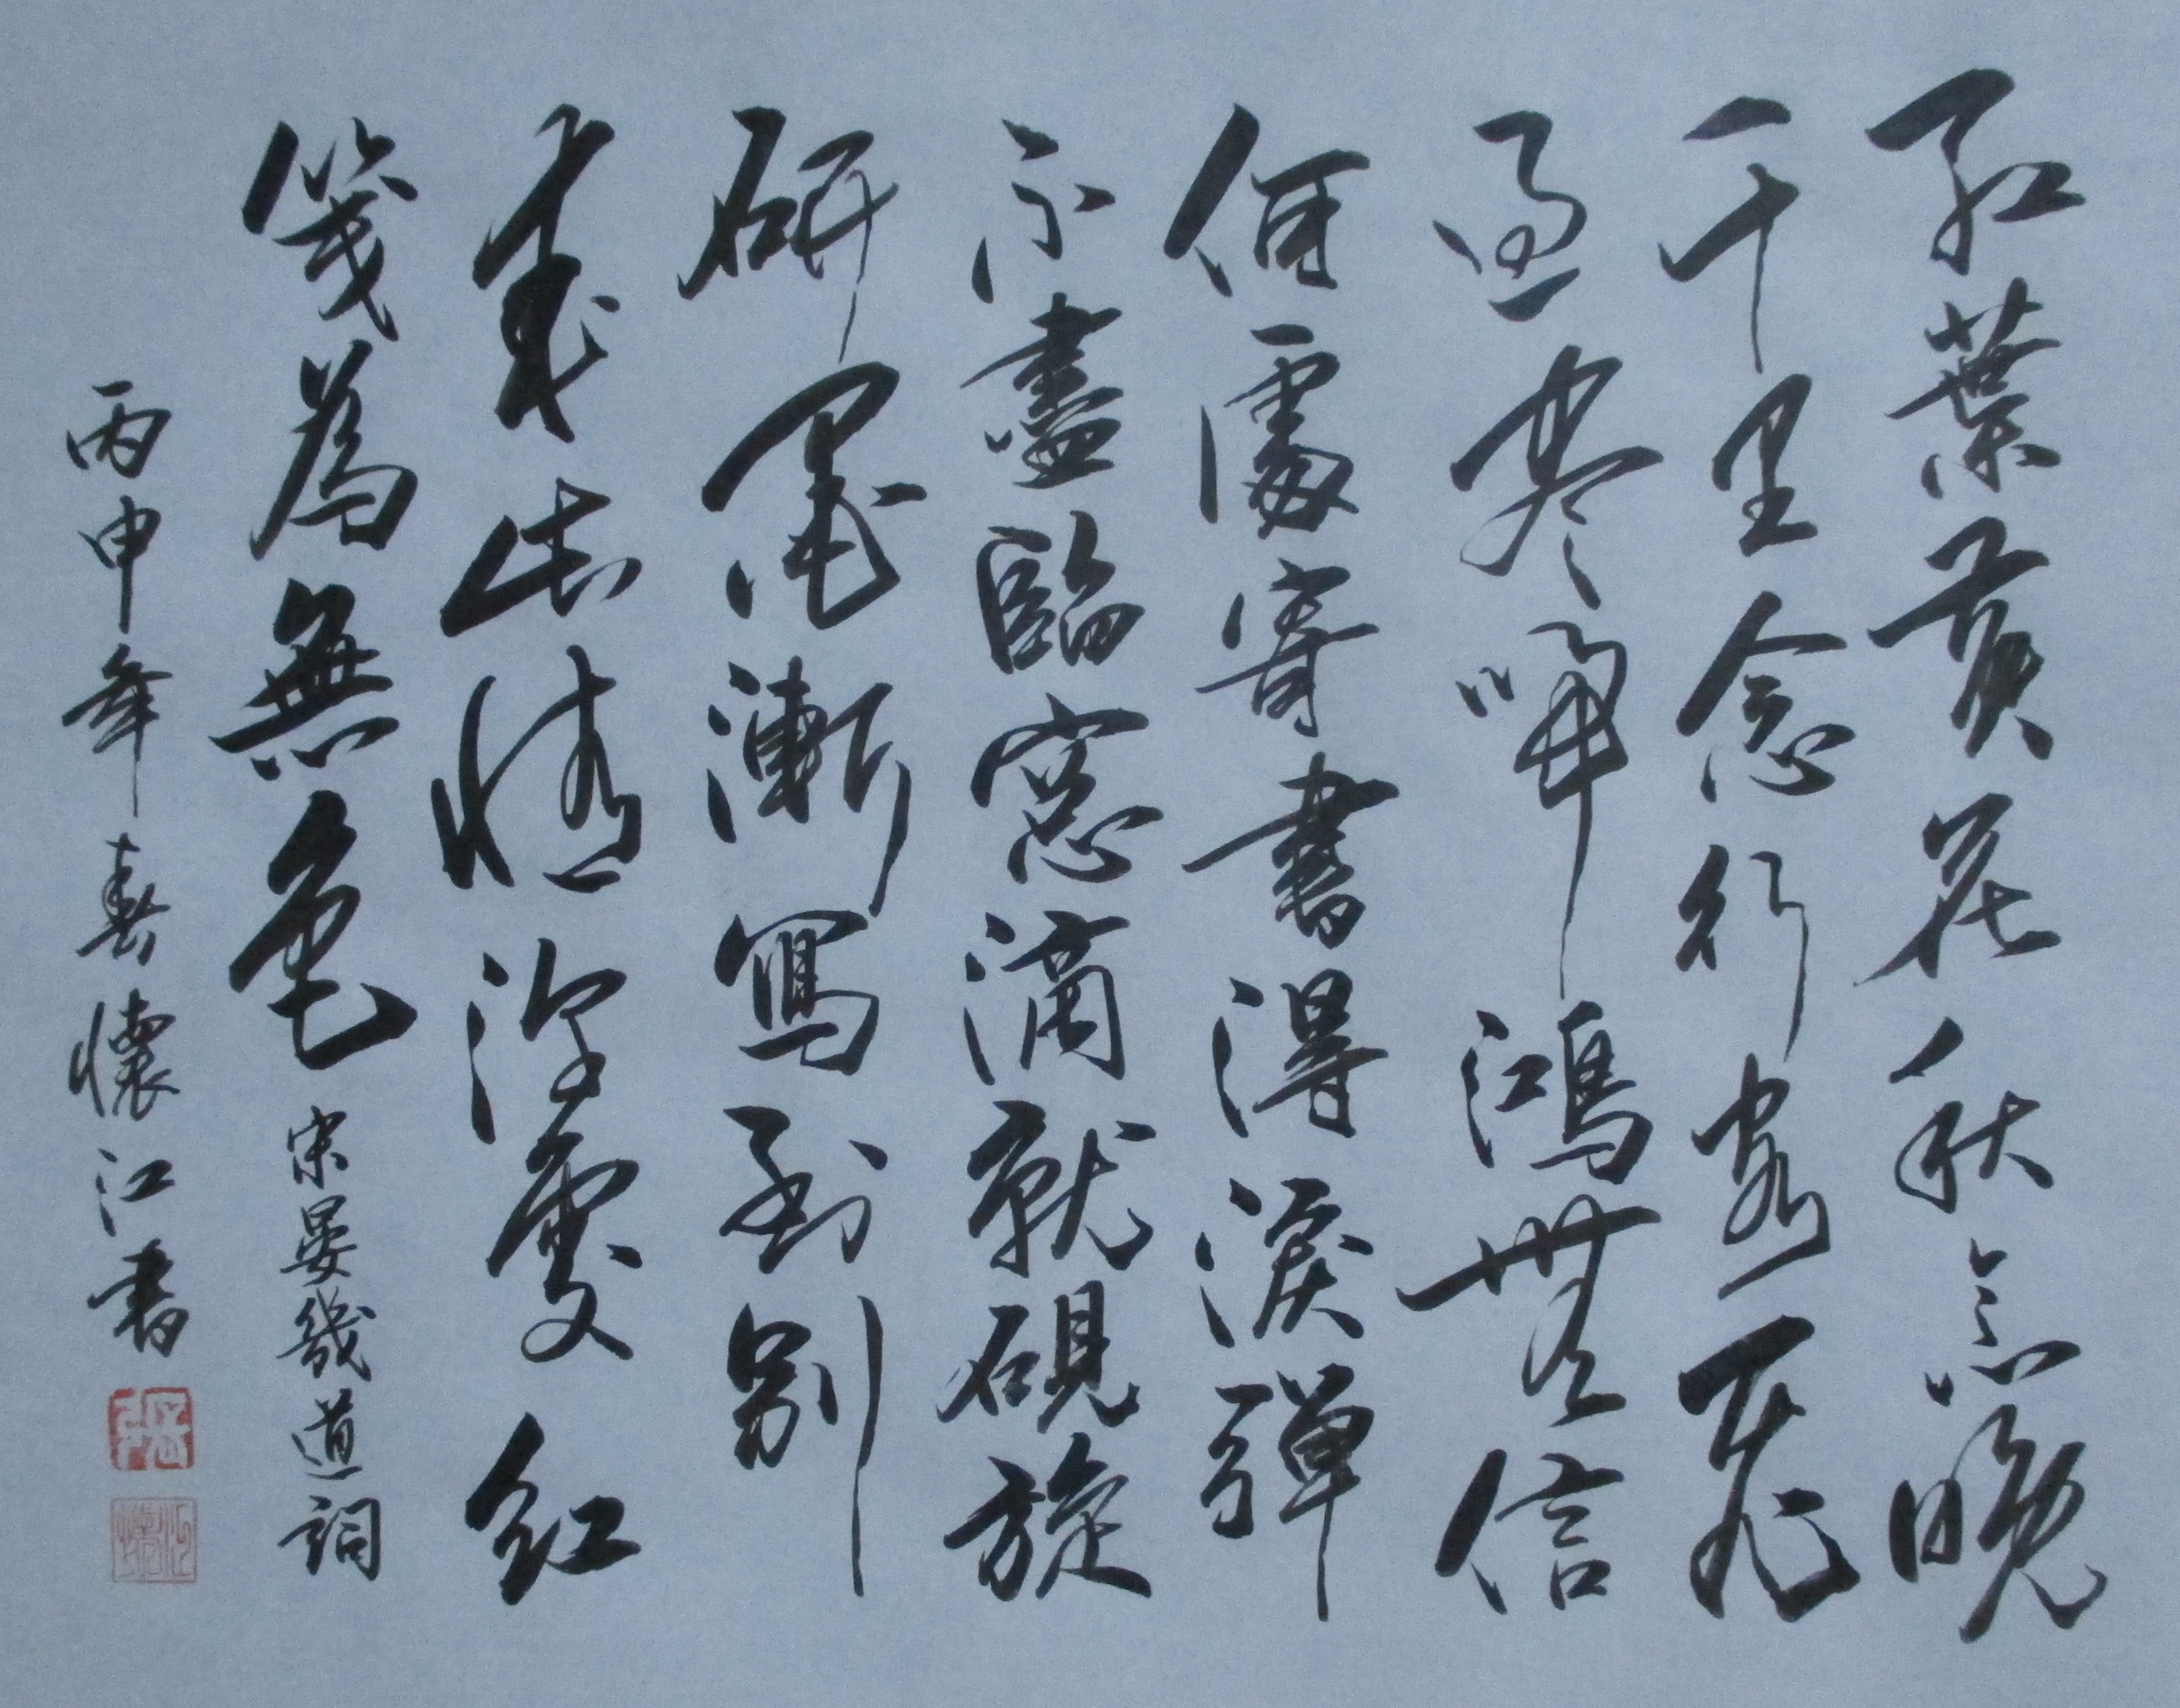 紅葉黃花秋意晚
千里念行客飛
過盡歸鴻無信
何處寄書得淚彈
不盡臨窗滴就硯旋
研墨漸寫到別
來此情深處紅
箋為無色 宋晏幾道詞
丙申年春懷江書